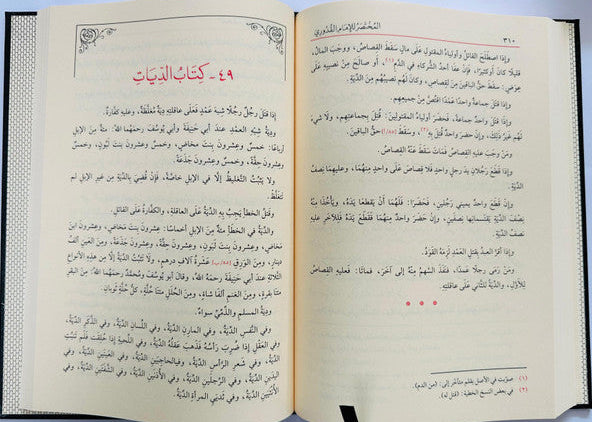 ٣١٠
المُختصَر للإمام القُدوري
وإذا اصطَلَحَ القاتلُ وأولياءُ المقتولِ على مالٍ سَقَطَ القِصاصُ، ووجَبَ المالُ،
قليلًا كانَ أو كثيرًا، فإنْ عفا أحدُ الشُّركاءِ في الدَّمِ(١)، أو صالحَ مِنْ نصيبِهِ على
عِوَضٍ: سقطَ حقُّ الباقينَ مِنَ القِصاصِ، وكانَ لهُمْ نصيبُهُمْ مِنَ الدِّيَةِ.
وإذا قتلَ جماعةٌ واحدًا عَمْدًا اقتُصَّ مِنْ جميعِهِمْ.
وإذا قتلَ واحدٌ جماعةً، فحَضَرَ أولياءُ المقتولينَ: قُتلَ بجماعتِهِم، ولا شيءَ
لهُم غيرُ ذلكَ، وإنْ حضرَ واحدٌ قُتلَ بِهِ(٢)، وسَقَطَ [٥٥/أ] حقُّ الباقينَ.
ومَنْ وجَبَ عليهِ القِصاصُ فماتَ سَقَطَ عنْهُ القِصاصُ.
وإذا قَطَعَ رَجُلانِ يدَ رجلٍ واحدٍ فلا قِصاصَ على واحدٍ منْهُما، وعليهِما نِصفُ
الدِّيَةِ.
وإذا قَطَعَ واحدٌ يمينَي رجُلَينِ، فحَضَرَا: فلَهُما أنْ يَقطعَا يدَهُ، ويأخُذَا منْهُ
نِصْفَ الدِّيَةِ يقتسِمانِها نصفَينِ، وإنْ حَضَرَ واحدٌ منْهُما فقَطَعَ يدَهُ فللآخَرِ عليهِ
نصفُ الدِّيَةِ.
وإذا أقرَّ العبدُ بقتلِ العمدِ لزِمَهُ القَوَدُ.
ومَنْ رَمَى رجلًا عمدًا، فنَفَذَ السَّهمُ منْهُ إلى آخرَ، فماتَا: فعليهِ القِصاصُ
للأوَّلِ، والدِّيَةُ للثاني على عاقلتِهِ.
(١) صوِّبت في الأصل بقلم متأخر إلى: (من الدم).
(٢) في بعض النسخ الخطية: (قتل له).
٤٩- كِتَابُ الدِّيَاتِ
إذا قتلَ رجلٌ رجُلًا شِبهَ عَمْدٍ فَعَلَى عاقلتِهِ دِيَةٌ مُغلَّظةٌ، وعليهِ كفَّارةٌ.
وديةُ شِبْهِ العمْدِ عندَ أبي حَنِيفَةَ وأبي يُوسُفَ رَحمَهُما اللهُ: مئةٌ مِنَ الإبلِ
أرباعًا: خمسٌ وعشرونَ بنتَ مخاضٍ، وخمسٌ وعشرونَ بنتَ لَبُونٍ، وخمسٌ
وعشرونَ حِقَّةً، وخمسٌ وعشرونَ جَذَعَةً.
ولا يَثبُتُ التَّغليظُ إلَّا في الإبلِ خاصَّةً، فإنْ قُضِيَ بالدِّيَةِ مِنْ غيرِ الإبلِ لم
تتغلَّظْ.
وقتلُ الخطأِ يَجِبُ بِهِ الدِّيَةُ على العاقلةِ، والكفَّارةُ على القاتلِ.
والدِّيَةُ في الخطأِ مئةٌ مِنَ الإبلِ أخماسًا: عشرونَ بنتَ مَخاضٍ، وعشرونَ ابنَ
مَخاضٍ، وعشرونَ بنتَ لَبُونٍ، وعشرونَ حِقَّةً، وعشرونَ جَذَعَةً، ومنَ العَينِ ألفُ
دينارٍ، ومنَ الوَرِقِ [٥٥/ب] عشرةُ آلافِ دِرهمٍ، ولا تَثبُتُ الدِّيَةُ إلَّا مِنْ هذهِ الأنواعِ
الثَّلاثةِ عندَ أبي حَنِيفَةَ رحمَهُ اللهُ، وقالَ أبو يُوسُفَ ومُحمَّدٌ رحمَهُما اللهُ: مِنَ البقرِ
مئتا بقرةٍ، ومِنَ الغنمِ ألفا شاةٍ، ومِنَ الحُلَلِ مئتا حُلَّةٍ، كلُّ حُلَّةٍ ثوبانِ.
وديةُ المسلمِ والذِّمِّيِّ سواءٌ.
وفي النَّفْسِ الدِّيَةُ، وفي المارنِ الدِّيَةُ، وفي اللِّسانِ الدِّيَةُ، وفي الذَّكَرِ الدِّيَةُ،
وفي العقلِ إذا ضُرِبَ رأسُهُ فذَهَبَ عقلُهُ الدِّيَةُ، وفي اللِّحيةِ إذا حُلقتْ فلَم تَنبُتْ
الدِّيَةُ، وفي شعرِ الرَّأسِ الدِّيَةُ، وفي الحاجبَينِ الدِّيَةُ، وفي العَينَينِ الدِّيَةُ، وفي
اليدَينِ الدِّيَةُ، وفي الرِّجلَينِ الدِّيَةُ، وفي الأُذنَينِ الدِّيَةُ، وفي الشَّفتَينِ الدِّيَةُ، وفي
الأُنثيَينِ الدِّيَةُ، وفي ثَديَيِ المرأةِ الدِّيَةُ.